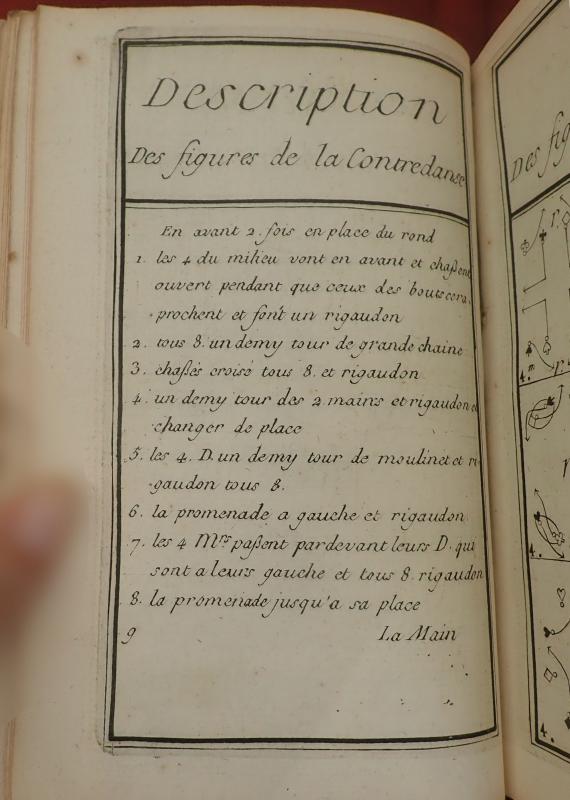 Description
Des figures de la Contredanse
En avant 2. fois en place du rond
1. les 4 du milieu vont en avant et chaßent
ouvert pendant que ceux des bouts cera.
prochent et font un rigaudon
2. tous 8. un demy tour de grande chaine
3. chaßés croisé tous 8. et rigaudon
4. un demy tour des 2. mains et rigaudon et
changer de place
5. les 4. D. un demy tour de moulinet et ri
gaudon tous 8.
6. la promenade a gauche et rigaudon
7. les 4 Mrs paßent pardevant leurs D. qui
sont a leurs gauche et tous 8. rigaudon
8. la promenade jusqu'a sa place
9 La Main
Des fig
4.
4.
4.